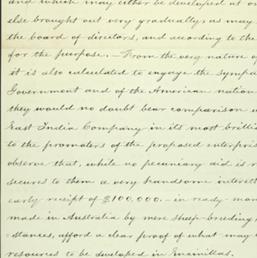 and which may either be developed at on
else brought out very gradually, as may
the board of directors, and according to the
for the purpose. — From the very nature of
it is also calculated to engage the sympa
Government and of the American nation
they would no doubt bear comparison w
East India Company in its most brilli
to the promoters of the proposed enterpris
observe that, while no pecuniary aid is r
secures to them a very handsome interest
early receipt of £100.000. in ready mon
made in Australia by mere sheep-breeding,
stances, afford a clear proof of what may
resources to be developed in